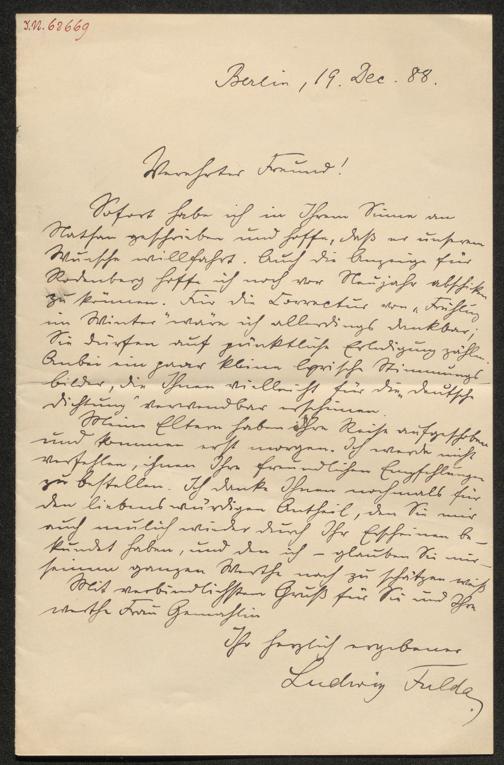 I.N. 68669
Berlin, 19. Dec. 88.
Verehrter Freund!
Sofort habe ich in Ihrem Sinne an
Nathan geschrieben und hoffe, daß er unserem
Wunsche willfahrt. Auch die Anzeige für
Rodenberg hoffe ich noch vor Neujahr abschicken
zu können. Für die Correctur von „Frühling
im Winter" wäre ich allerdings dankbar;
Sie dürfen auf pünktliche Erledigung zählen.
Anbei ein paar kleine lyrische Stimmungs-
bilder, die Ihnen vielleicht für die „deutsche
Dichtung" verwendbar erscheinen.
Meine Eltern haben Ihre Reise aufgeschoben
und kommen erst morgen. Ich werde nicht
verfehlen, ihnen Ihre freundlichen Empfehlungen
zu bestellen. Ich danke Ihnen nochmals für
den liebenswürdigen Antheil, den Sie mir
auch neulich wieder durch Ihr Erscheinen be-
kundet haben, und den ich – glauben Sie mir –
seinem ganzen Werthe nach zu schätzen weiß.
Mit verbindlichstem Gruß für Sie und Ihre
werthe Frau Gemahlin
Ihr herzlich ergebener
Ludwig Fulda